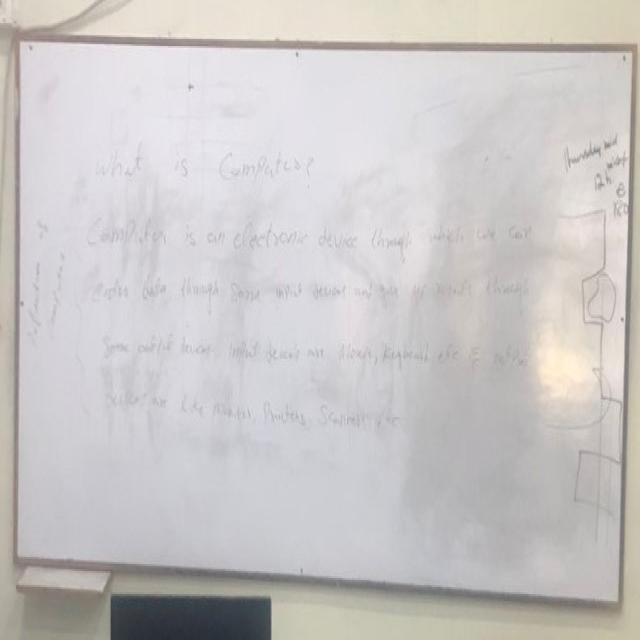 What is Computer?
Computer is an electronic device through which we can
enter data through some input devices and get results through
Some output devices. Input devices are Mouse, Keyboard etc & output
devices are like monitor, Printers, Scanners etc
Definition of
computer